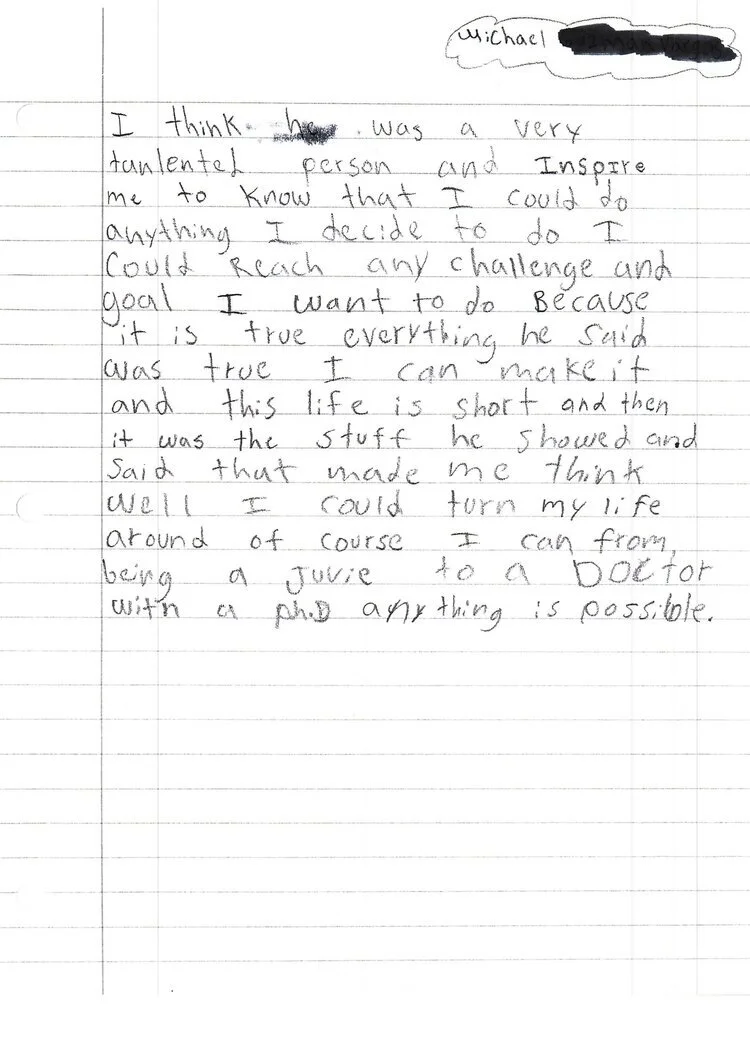 Michael
I think he was a very
tanlented person and Inspire
me to know that I could do
anything I decide to do I
Could Reach any challenge and
goal I want to do Because
it is true everything he said
was true I can make it
and this life is short and then
it was the stuff he showed and
Said that made me think
Well I could turn my life
around of course I can from
being a Juvie to a DOCtor
with a ph.D anything is possible.